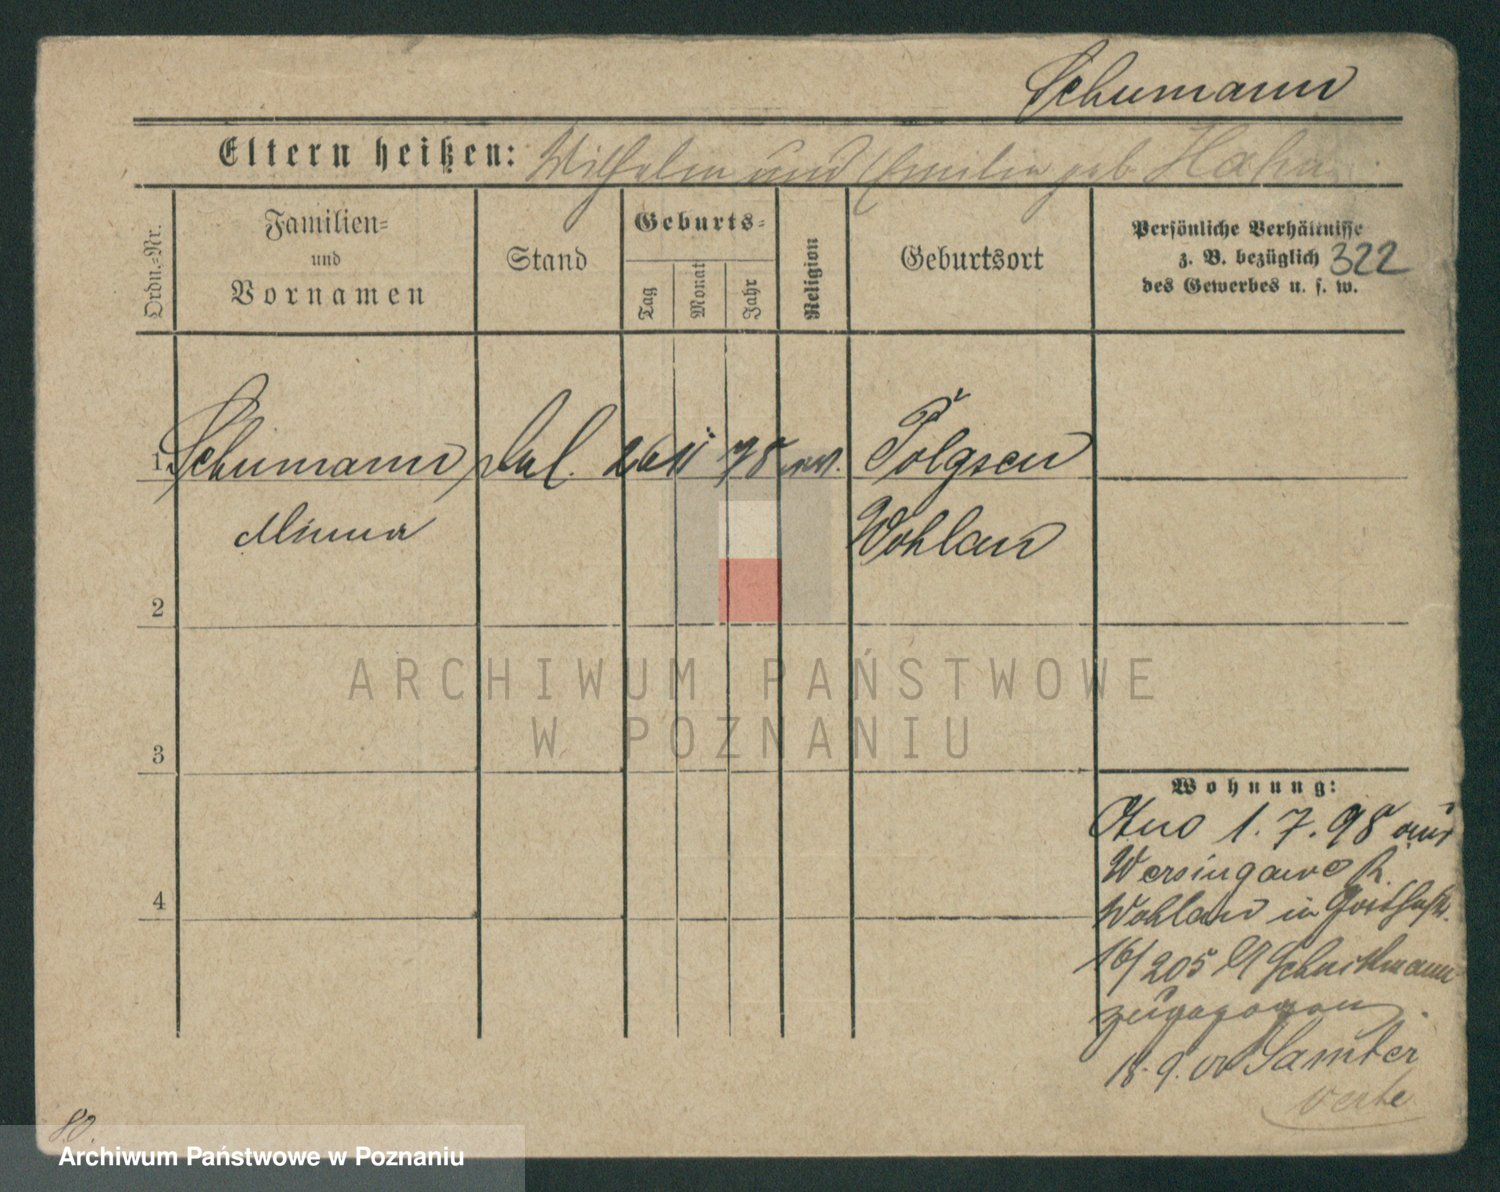 Schumann
Eltern heißen: Wilhelm und Emilie geb. Hahn
Ordn.-Nr.
Familien-
und
Vornamen
Stand
Geburts-
Tag
Monat
Jahr
Religion
Geburtsort
Persönliche Verhältnisse
z. B. bezüglich
des Gewerbes u. s. w.
322
1. Schumann 26 11 78 Tolgsen
Minna Wohlau
2
3
4
Wohnung:
1. 7. 98 aus
Wersingawe
Wohlau in
16/205
zugezogen
18. 9. 00 Samter
verte
80.
ARCHIWUM PAŃSTWOWE
W POZNANIU
Archiwum Państwowe w Poznaniu